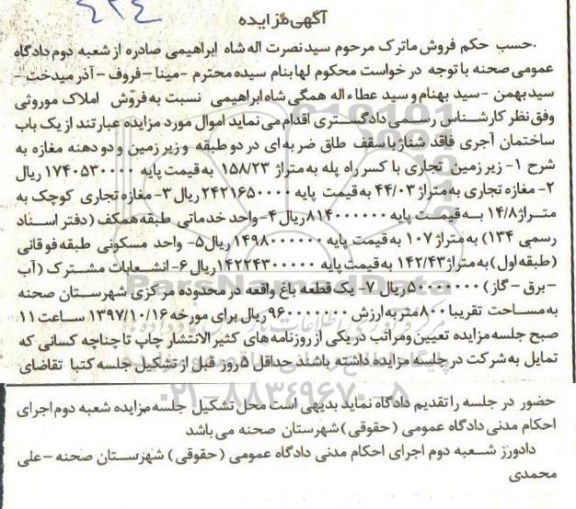 ۴۲۴
آگهی مزایده
.حسب حکم فروش ماترک مرحوم سید نصرت اله شاه ابراهیمی صادره از شعبه دوم دادگاه
عمومی صحنه با توجه در خواست محکوم لها بنام سیده محترم -مینا-فروف-آذر میدخت -
سید بهمن -سید بهنام و سید عطاءاله همگی شاه ابراهیمی نسبت به فروش املاک موروثی
وفق نظر کارشناس رسمی دادگستری اقدام می نماید اموال مورد مزایده عبارتند از یک باب
ساختمان آجری فاقد شناژ با سقف طاق ضربه ای در دو طبقه و زیر زمین و دو دهنه مغازه به
شرح ۱- زیر زمین تجاری با کسر راه پله به متراژ ۱۵۸/۲۳ به قیمت پایه ۱۷۴۰۵۳۰۰۰۰ ریال
۲- مغازه تجاری به متراژ ۴۴/۰۳ به قیمت پایه ۲۴۲۱۶۵۰۰۰۰ ریال ۳- مغازه تجاری کوچک به
متراژ ۱۴/۸ به قیمت پایه ۸۱۴۰۰۰۰۰۰ ریال ۴- واحد خدماتی طبقه همکف (دفتر اسناد
رسمی ۱۳۴) به متراژ ۱۰۷ به قیمت پایه ۱۴۹۸۰۰۰۰۰۰ ریال ۵- واحد مسکونی طبقه فوقانی
(طبقه اول) به متراژ ۱۴۲/۴۳ به قیمت پایه ۱۴۲۲۴۳۰۰۰۰۰ ریال ۶- انشعابات مشترک (آب
-برق-گاز) ۵۰۰۰۰۰۰۰ ریال ۷- یک قطعه باغ واقعه در محدوده مرکزی شهرستان صحنه
به مساحت تقریبا ۸۰۰ متر به ارزش ۹۶۰۰۰۰۰۰۰ ریال برای مورخه ۱۳۹۷/۱۰/۱۶ ساعت ۱۱
صبح جلسه مزایده تعیین و مراتب در یکی از روزنامه های کثیر الانتشار چاپ تا چناچه کسانی که
تمایل به شرکت در جلسه مزایده داشته باشند حداقل ۵ روز قبل از تشکیل جلسه کتبا تقاضای
حضور در جلسه را تقدیم دادگاه نماید بدیهی است محل تشکیل جلسه مزایده شعبه دوم اجرای
احکام مدنی دادگاه عمومی (حقوقی) شهرستان صحنه می باشد
دادورز شعبه دوم اجرای احکام مدنی دادگاه عمومی (حقوقی) شهرستان صحنه -علی
محمدی
ParsNamadData
۰۲۱-۸۸۳۴۹۶۷۰-۵